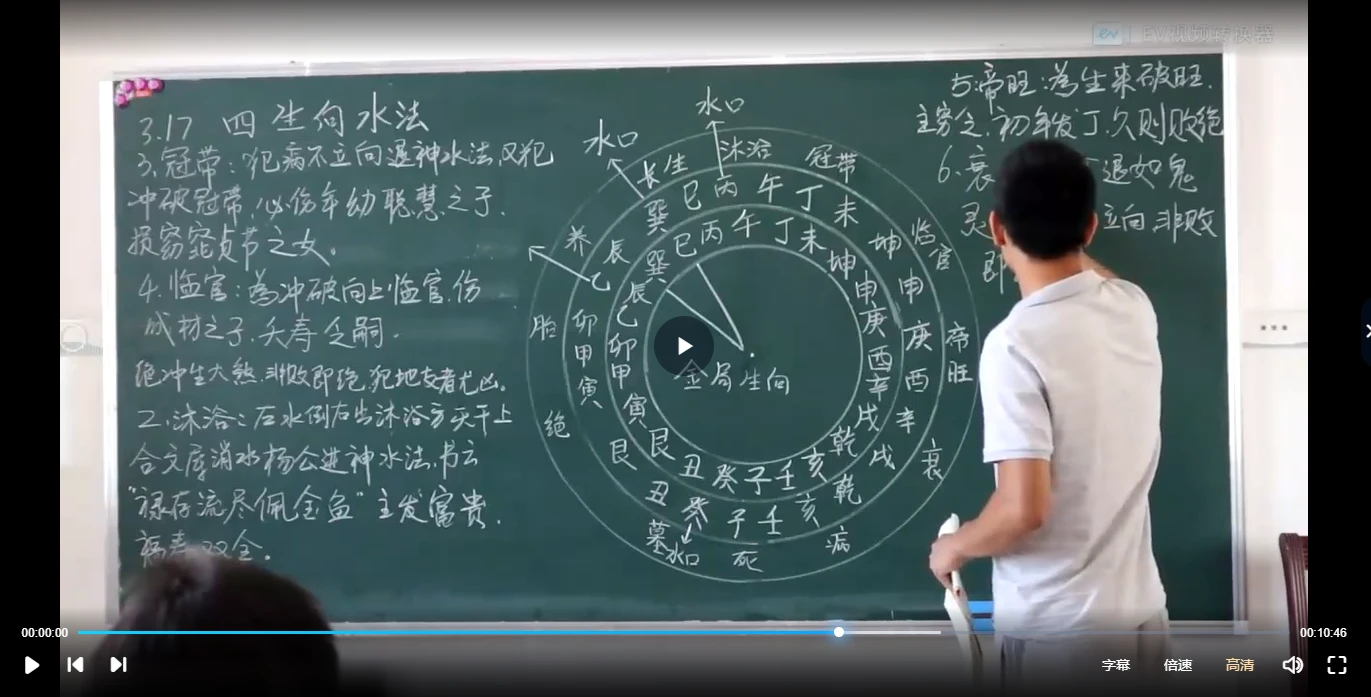 EV视频转换器
3.17 四生向水法
3.冠带：犯病不立向退神水法,又犯
冲破冠带,必伤年幼聪慧之子.
损窈窕贞节之女.
4.临官：為冲破向上临官.伤
成材之子,夭寿乏嗣.
绝冲生大煞.非败即绝.犯地支者尤凶。
2.沐浴：右水倒左出沐浴方天干上
合文库消水杨公进神水法.书云
"禄存流尽佩金鱼"主发富贵.
双全。
水口
水口
长生 沐浴 冠带
养 临官
胎 帝旺
绝 衰
墓 死 病
水口
巽 巳 丙 午 丁 未 坤 申 庚 酉 辛 戌 乾 亥 壬 子 癸 丑 艮 寅 甲 卯 乙 辰
巽 巳 丙 午 丁 未 坤 申 庚 酉 辛 戌 乾 亥 壬 子 癸 丑 艮 寅 甲 卯 乙 辰
金局生向
5.帝旺：為生来破旺.
主穷乏.初年发丁,久则败绝
6.衰 退如鬼
灵 立向非败
即
00:00:00
00:10:46
字幕
倍速
高清